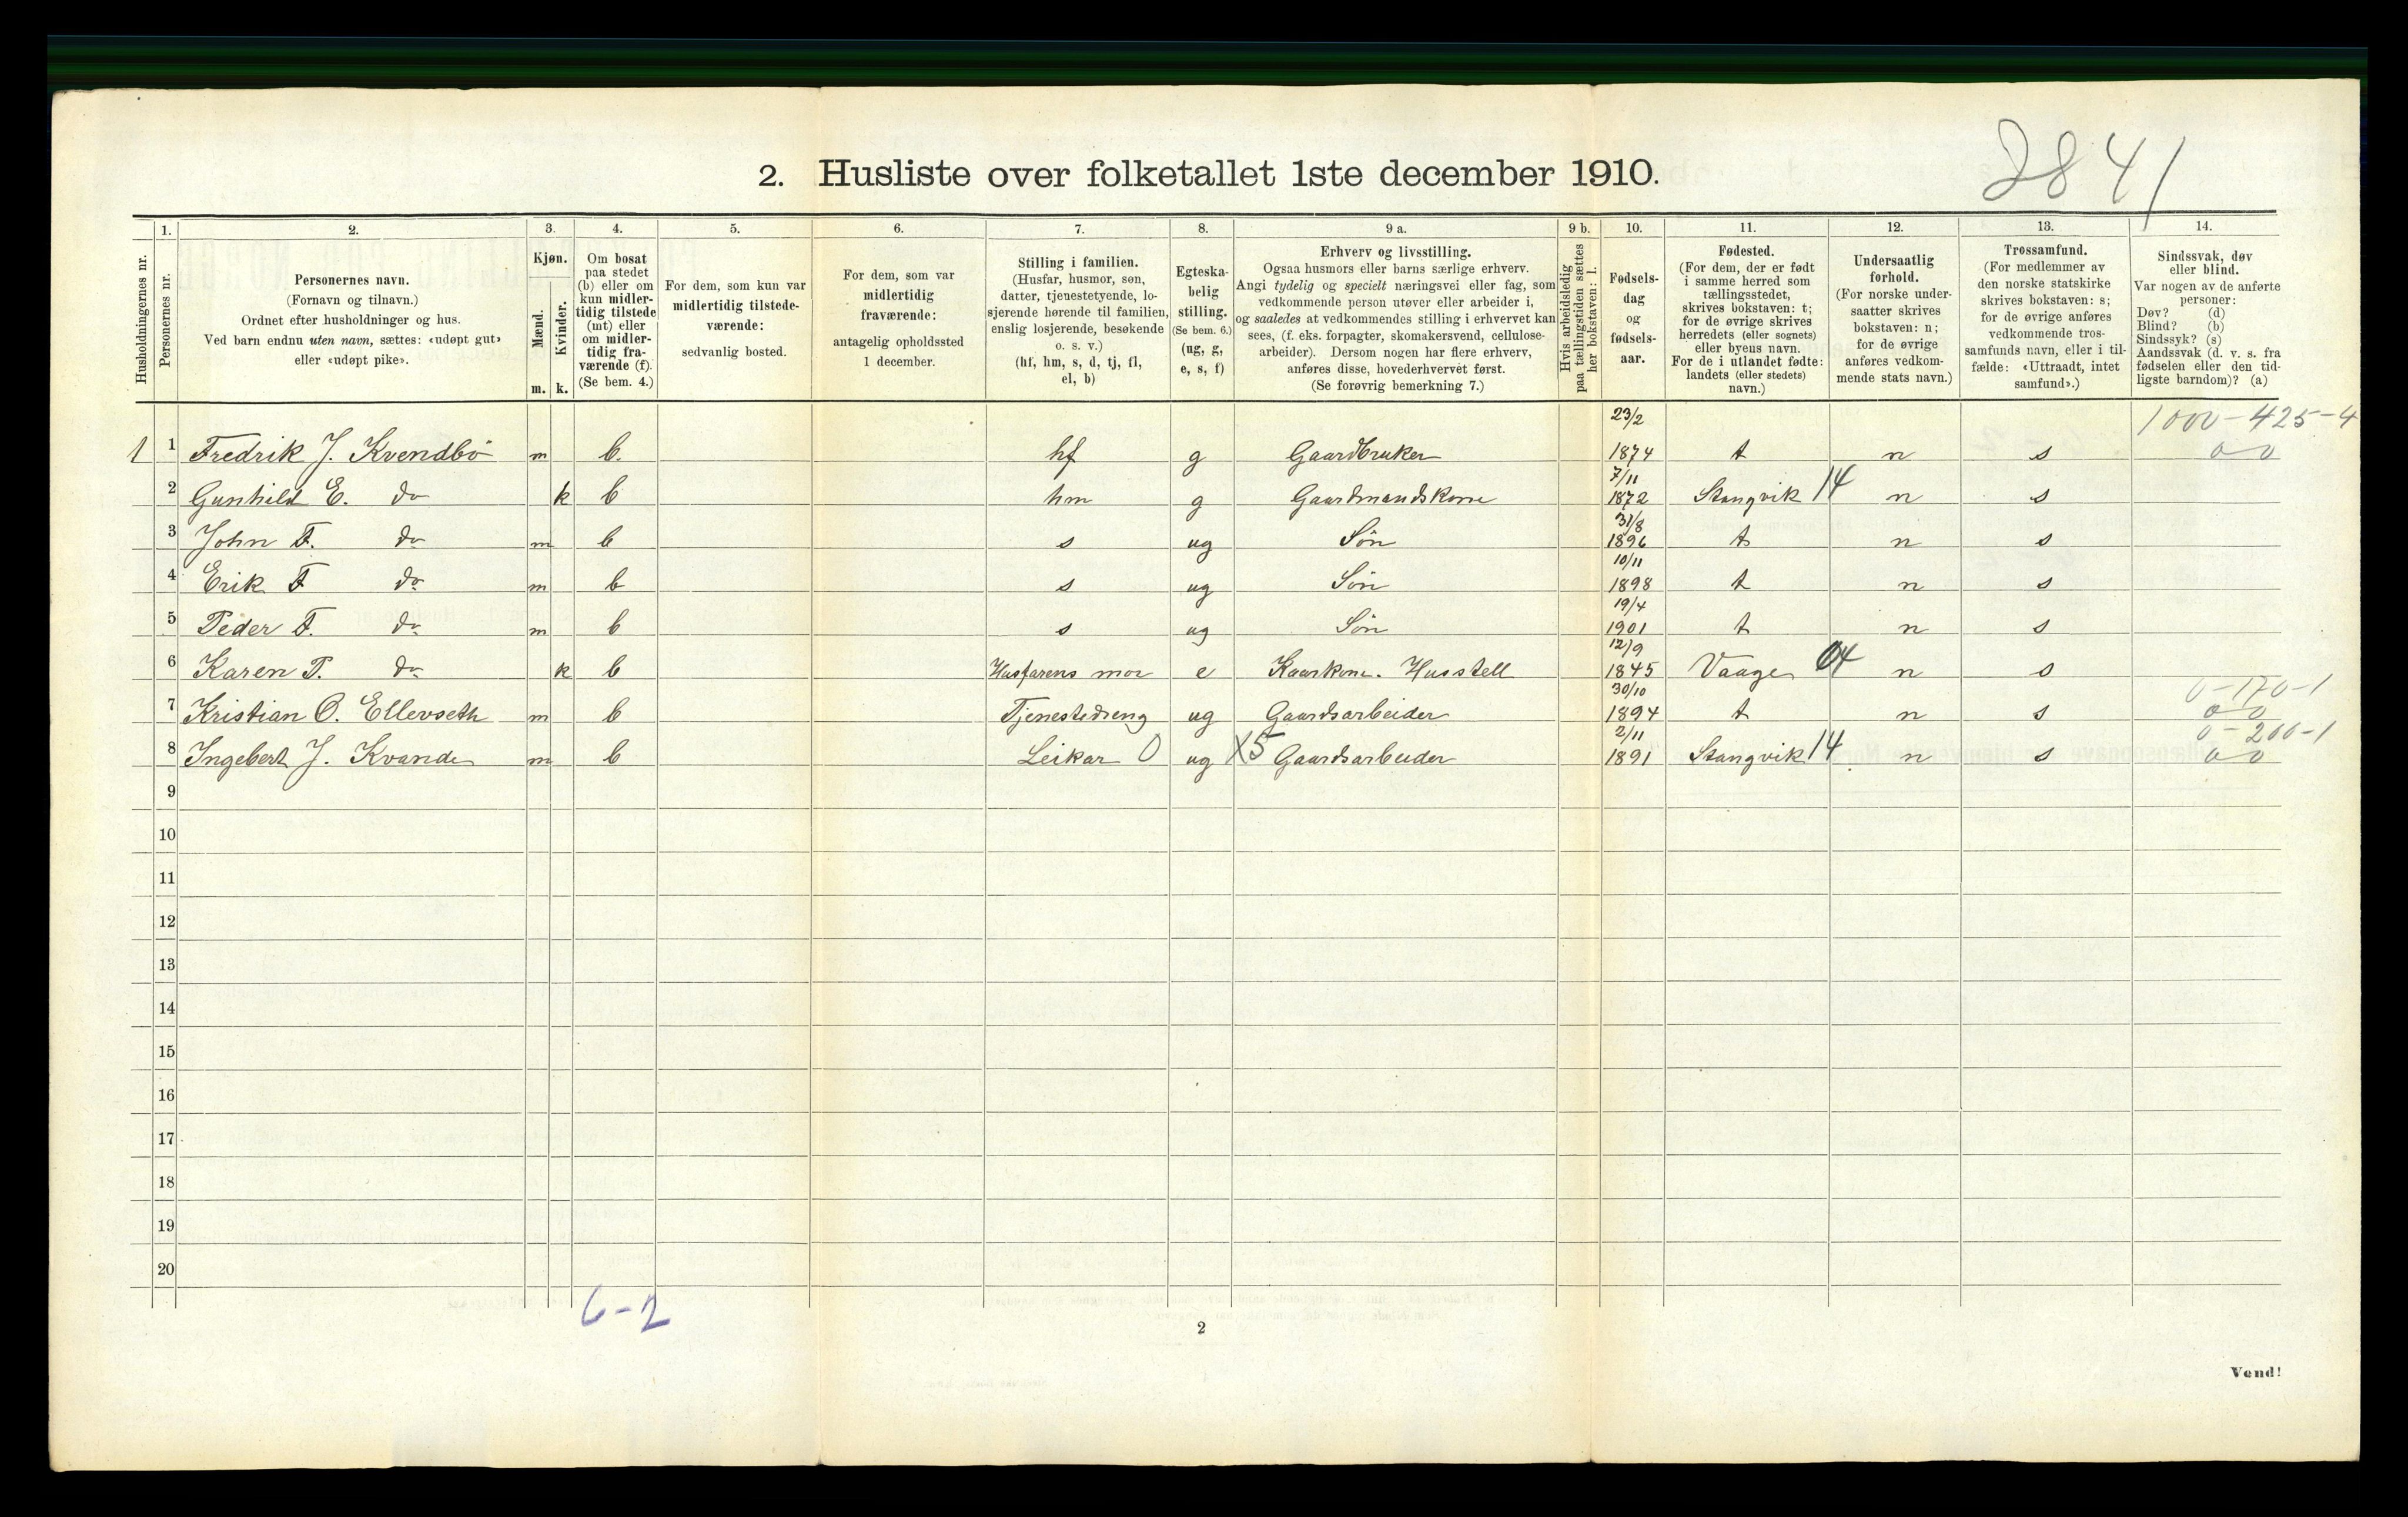 2841
2. Husliste over folketallet 1ste december 1910.
Husholdningernes nr.
1.
Personernes nr.
2.
Personernes navn.
(Fornavn og tilnavn.)
Ordnet efter husholdninger og hus.
Ved barn endnu uten navn, sættes: «udøpt gut»
eller «udøpt pike».
3.
Kjøn.
Mænd.
Kvinder.
m. k.
4.
Om bosat
paa stedet
(b) eller om
kun midler-
tidig tilstede
(mt) eller
om midler-
tidig fra-
værende (f).
(Se bem. 4.)
5.
For dem, som kun var
midlertidig tilstede-
værende:
sedvanlig bosted.
6.
For dem, som var
midlertidig
fraværende:
antagelig opholdssted
1 december.
7.
Stilling i familien.
(Husfar, husmor, søn,
datter, tjenestetyende, lo-
sjerende hørende til familien,
enslig losjerende, besøkende
o. s. v.)
(hf, hm, s, d, tj, fl,
el, b)
8.
Egteska-
belig
stilling.
(Se bem. 6.)
(ug, g,
e, s, f)
9 a.
Erhverv og livsstilling.
Ogsaa husmors eller barns særlige erhverv.
Angi tydelig og specielt næringsvei eller fag, som
vedkommende person utøver eller arbeider i,
og saaledes at vedkommendes stilling i erhvervet kan
sees, (f. eks. forpagter, skomakersvend, cellulose-
arbeider). Dersom nogen har flere erhverv,
anføres disse, hovederhvervet først.
(Se forøvrig bemerkning 7.)
9 b.
Hvis arbeidsledig
paa tællingstiden sættes
her bokstaven: l.
10.
Fødsels-
dag
og
fødsels-
aar.
11.
Fødested.
(For dem, der er født
i samme herred som
tællingsstedet,
skrives bokstaven: t;
for de øvrige skrives
herredets (eller sognets)
eller byens navn.
For de i utlandet fødte:
landets (eller stedets)
navn.)
12.
Undersaatlig
forhold.
(For norske under-
saatter skrives
bokstaven: n;
for de øvrige
anføres vedkom-
mende stats navn.)
13.
Trossamfund.
(For medlemmer av
den norske statskirke
skrives bokstaven: s;
for de øvrige anføres
vedkommende tros-
samfunds navn, eller i til-
fælde: «Uttraadt, intet
samfund».)
14.
Sindssvak, døv
eller blind.
Var nogen av de anførte
personer:
Døv? (d)
Blind? (b)
Sindssyk? (s)
Aandssvak (d. v. s. fra
fødselen eller den tid-
ligste barndom)? (a)
1 1 Fredrik J. Kvendbø m b. hf g Gaardbruker 23/2 1874 t n s 1000-425-4 0 0
2 Gunhild E. do k b hm g Gaardmandskone 7/11 1872 Stangvik 14 n s
3 John F. do m b s ug Søn 31/8 1896 t n s
4 Erik F do m b s ug Søn 10/11 1898 t n s
5 Peder F. do m b s ug Søn 19/4 1901 t n s
6 Karen P. do k b Husfarens mor e Kaarkone. Husstell 12/9 1845 Vaage n s
7 Kristian O. Ellevseth m b Tjenestedreng ug Gaardsarbeider 30/10 1894 t n s 0-170-1 0 0
8 Ingebert J. Kvande m b Leikar 0 ug X5 Gaardsarbeider 2/11 1891 Stangvik 14 n s 0-200-1 0 0
9
10
11
12
13
14
15
16
17
18
19
20
6-2
2
Vend!